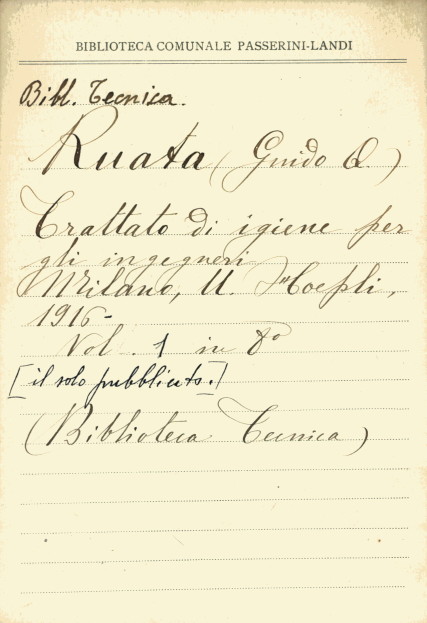 BIBLIOTECA COMUNALE PASSERINI-LANDI
Bibl. Tecnica.
Ruata (Guido Q.)
Trattato di igiene per
gli ingegneri
Milano, U. Hoepli,
1916-
Vol. 1 in 8º
[il solo pubblicato.]
(Biblioteca Tecnica)